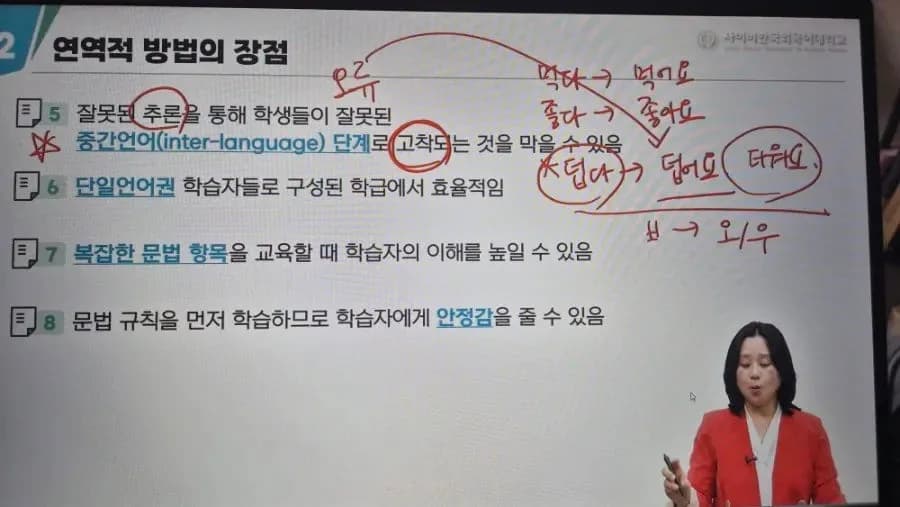 2
연역적 방법의 장점
사이버한국외국어대학교
오류
먹다 → 먹어요
좋다 → 좋아요
5 잘못된 추론을 통해 학생들이 잘못된
중간언어(inter-language) 단계로 고착되는 것을 막을 수 있음
*덥다 → 덥어요 더워요.
ㅂ → 오/우
6 단일언어권 학습자들로 구성된 학급에서 효율적임
7 복잡한 문법 항목을 교육할 때 학습자의 이해를 높일 수 있음
8 문법 규칙을 먼저 학습하므로 학습자에게 안정감을 줄 수 있음